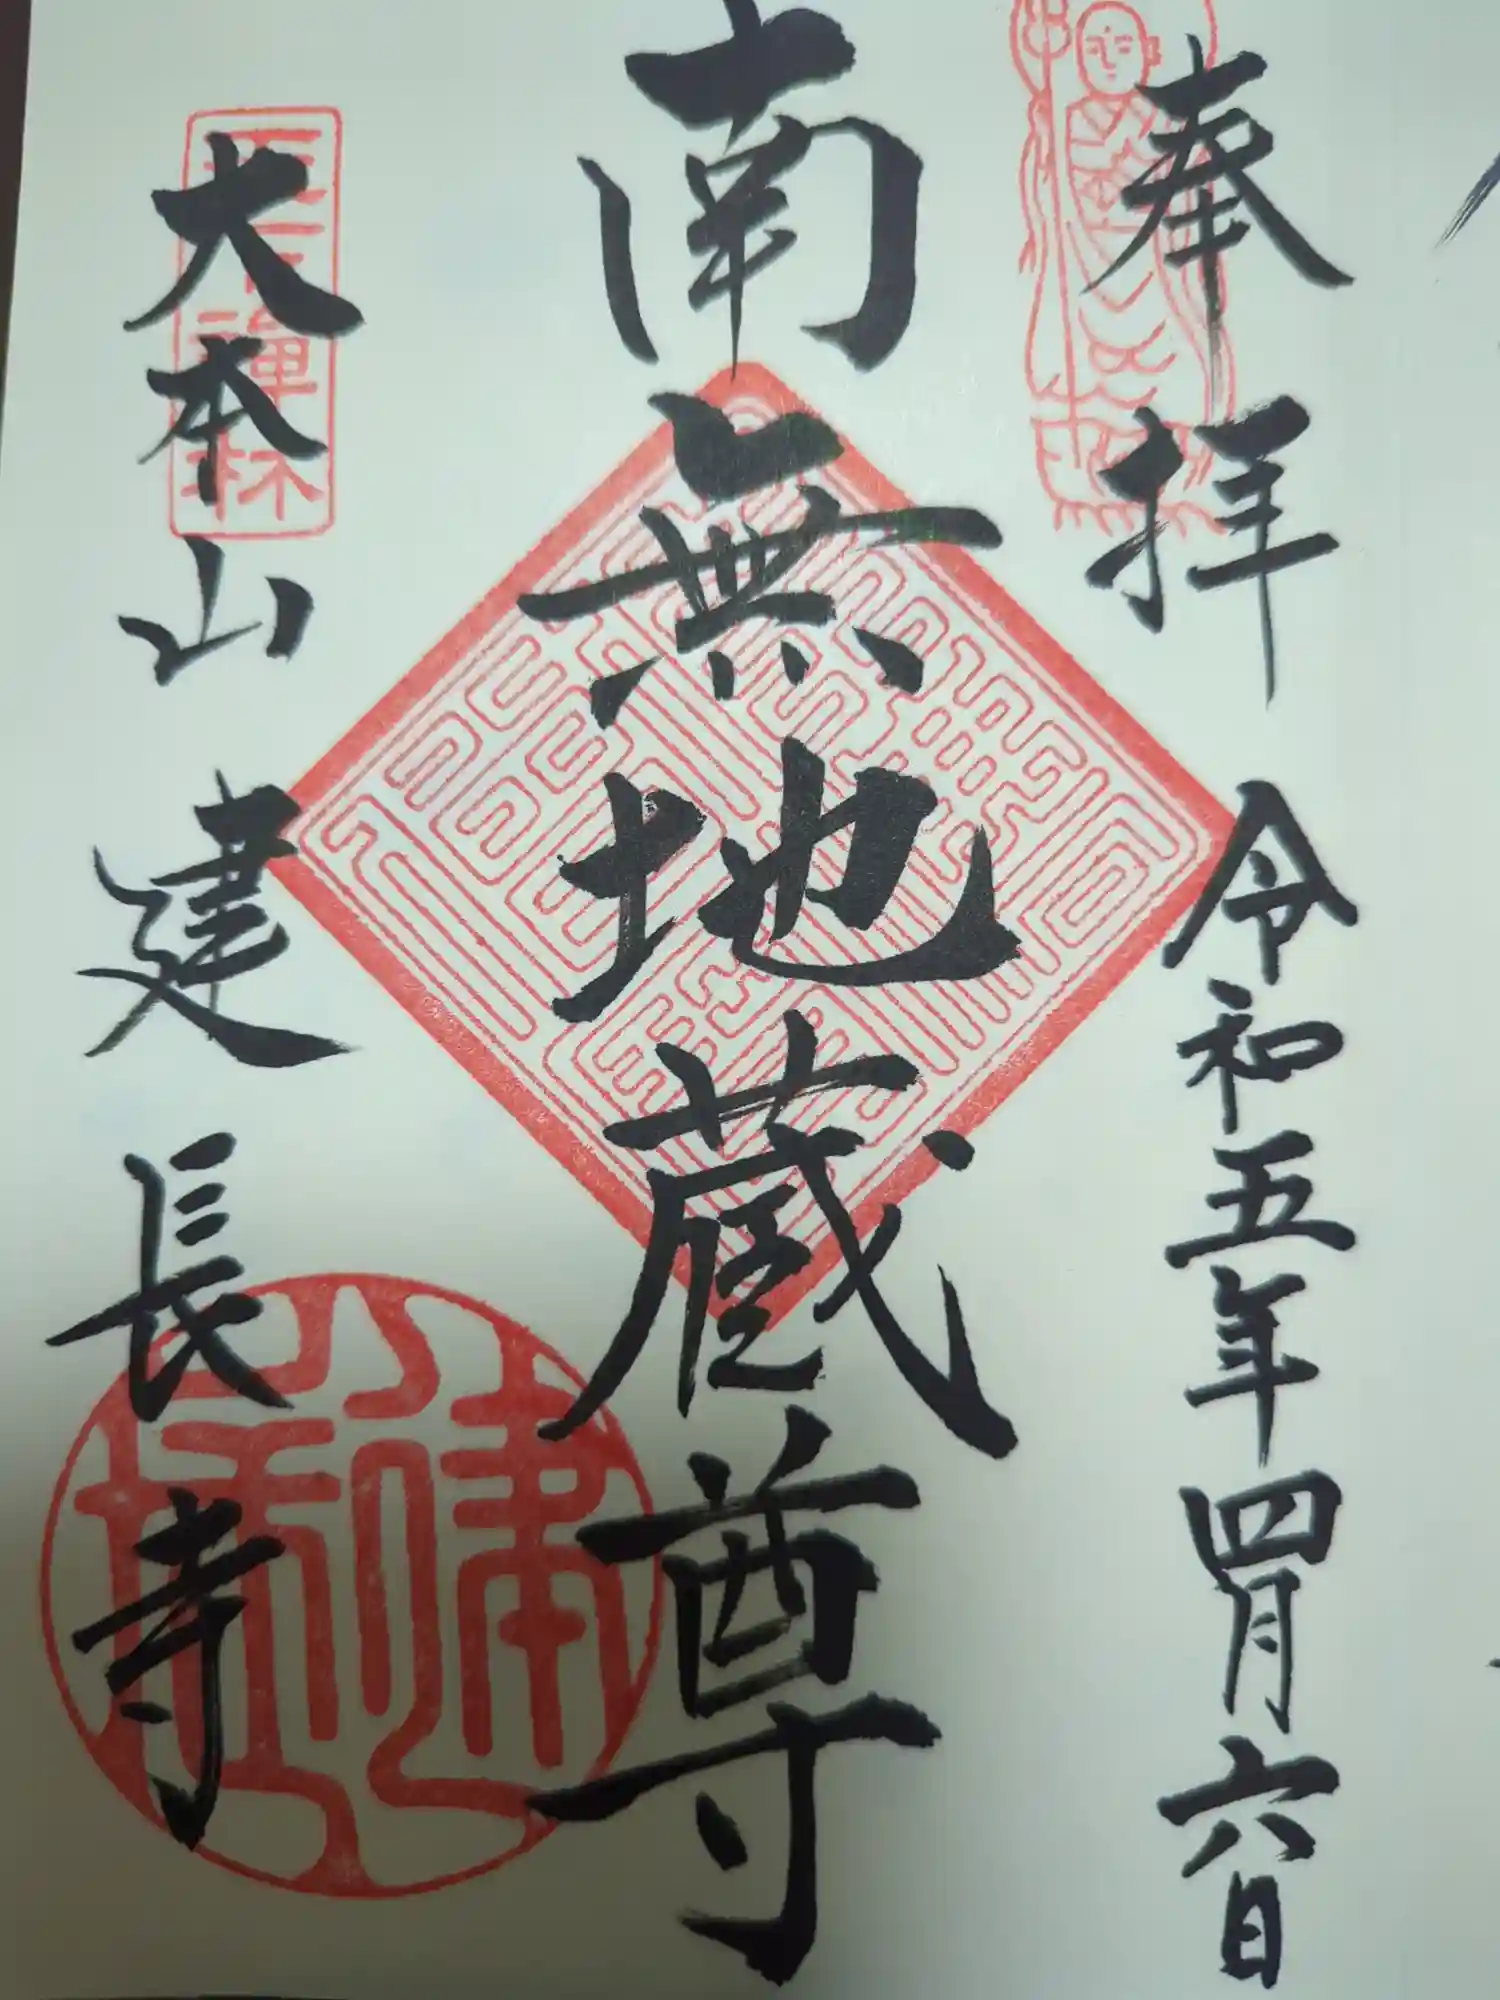 奉拝 令和五年四月六日
南無地蔵尊
大本山 建長寺